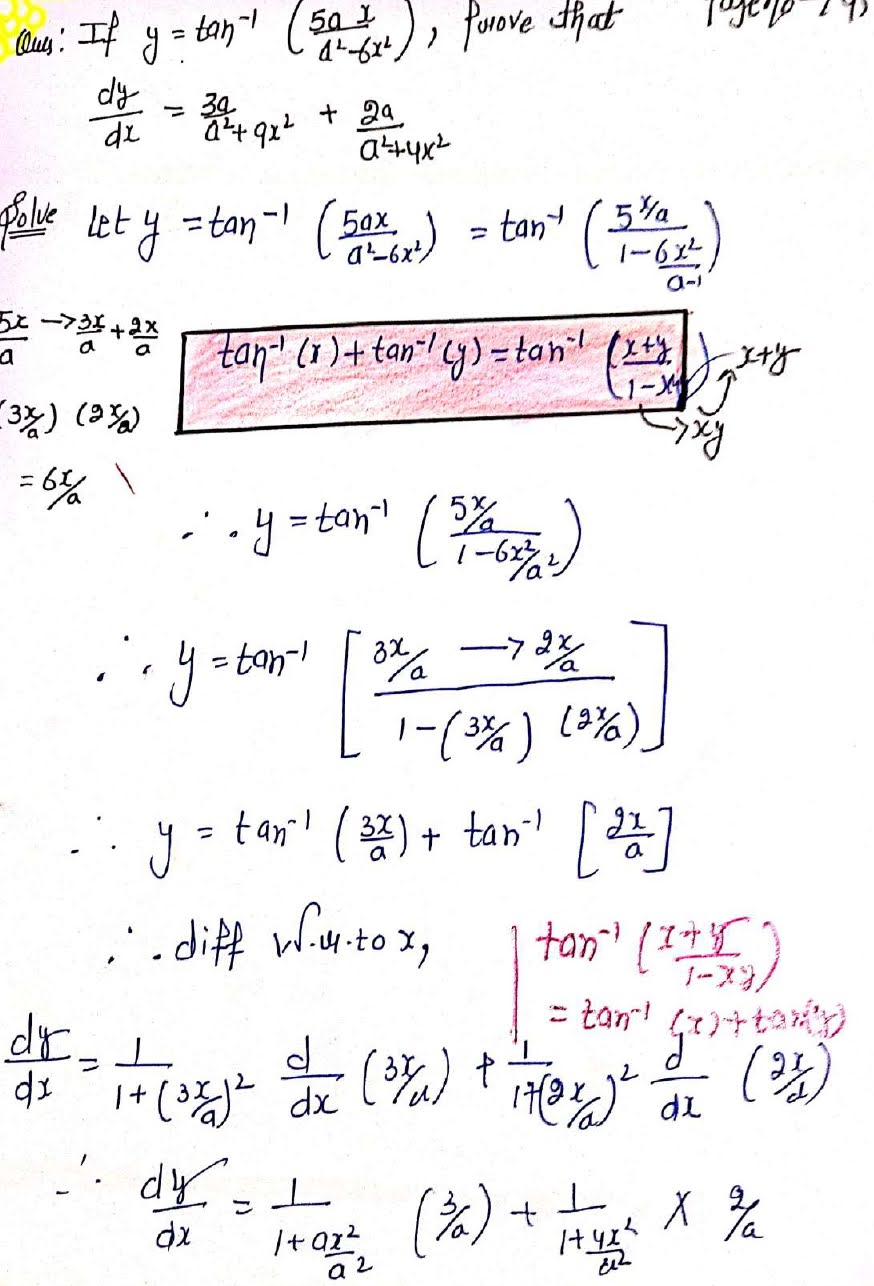 Ques: If y = tan⁻¹ (5a x / a²-6x²), Prove that
dy/dx = 3a / a²+9x² + 2a / a²+4x²
Solve Let y = tan⁻¹ (5ax / a²-6x²) = tan⁻¹ (5x/a / 1-6x²/a-1)
5x/a → 3x/a + 2x/a
tan⁻¹ (x) + tan⁻¹ (y) = tan⁻¹ (x+y / 1-xy) x+y
→ xy
(3x/a) (2x/a)
= 6x/a
∴ y = tan⁻¹ (5x/a / 1-6x²/a²)
∴ y = tan⁻¹ [3x/a → 2x/a / 1-(3x/a) (2x/a)]
∴ y = tan⁻¹ (3x/a) + tan⁻¹ [2x/a]
∴ diff w.r.to x,
tan⁻¹ (x+y / 1-xy)
= tan⁻¹ (x) + tan⁻¹(y)
dy/dx = 1 / 1+(3x/a)² d/dx (3x/a) + 1 / 1+(2x/a)² d/dx (2x/a)
∴ dy/dx = 1 / 1+9x²/a² (3/a) + 1 / 1+4x²/a² X 2/a